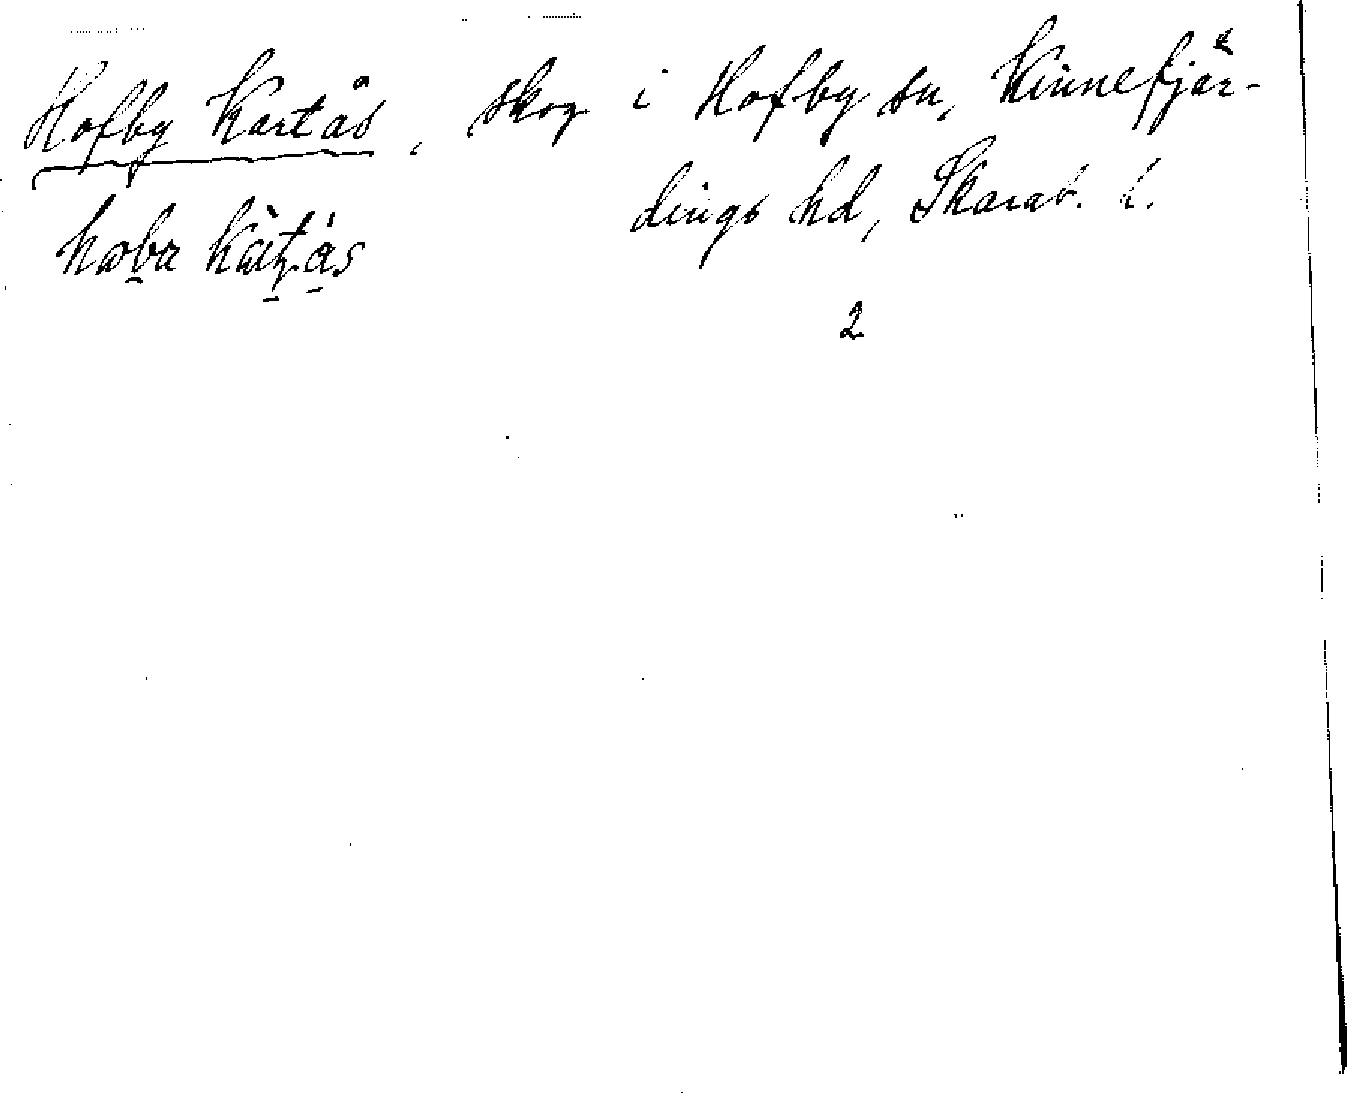 Hofby Kartås, skog i Hofby sn, Kinnefjär-
dings hd, Skarab. l.
2